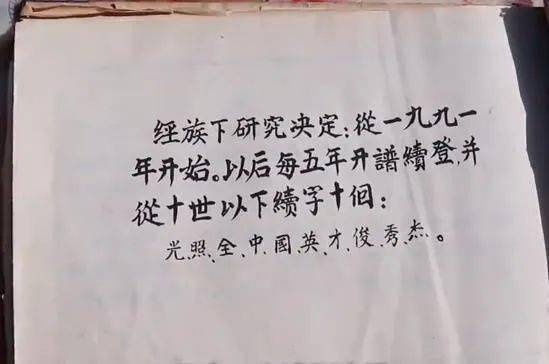 经族下研究决定:從一九九一
年开始。以后每五年开譜續登,并
從十世以下續字十個:
光、照、全、中、國、英、才、俊、秀、杰。